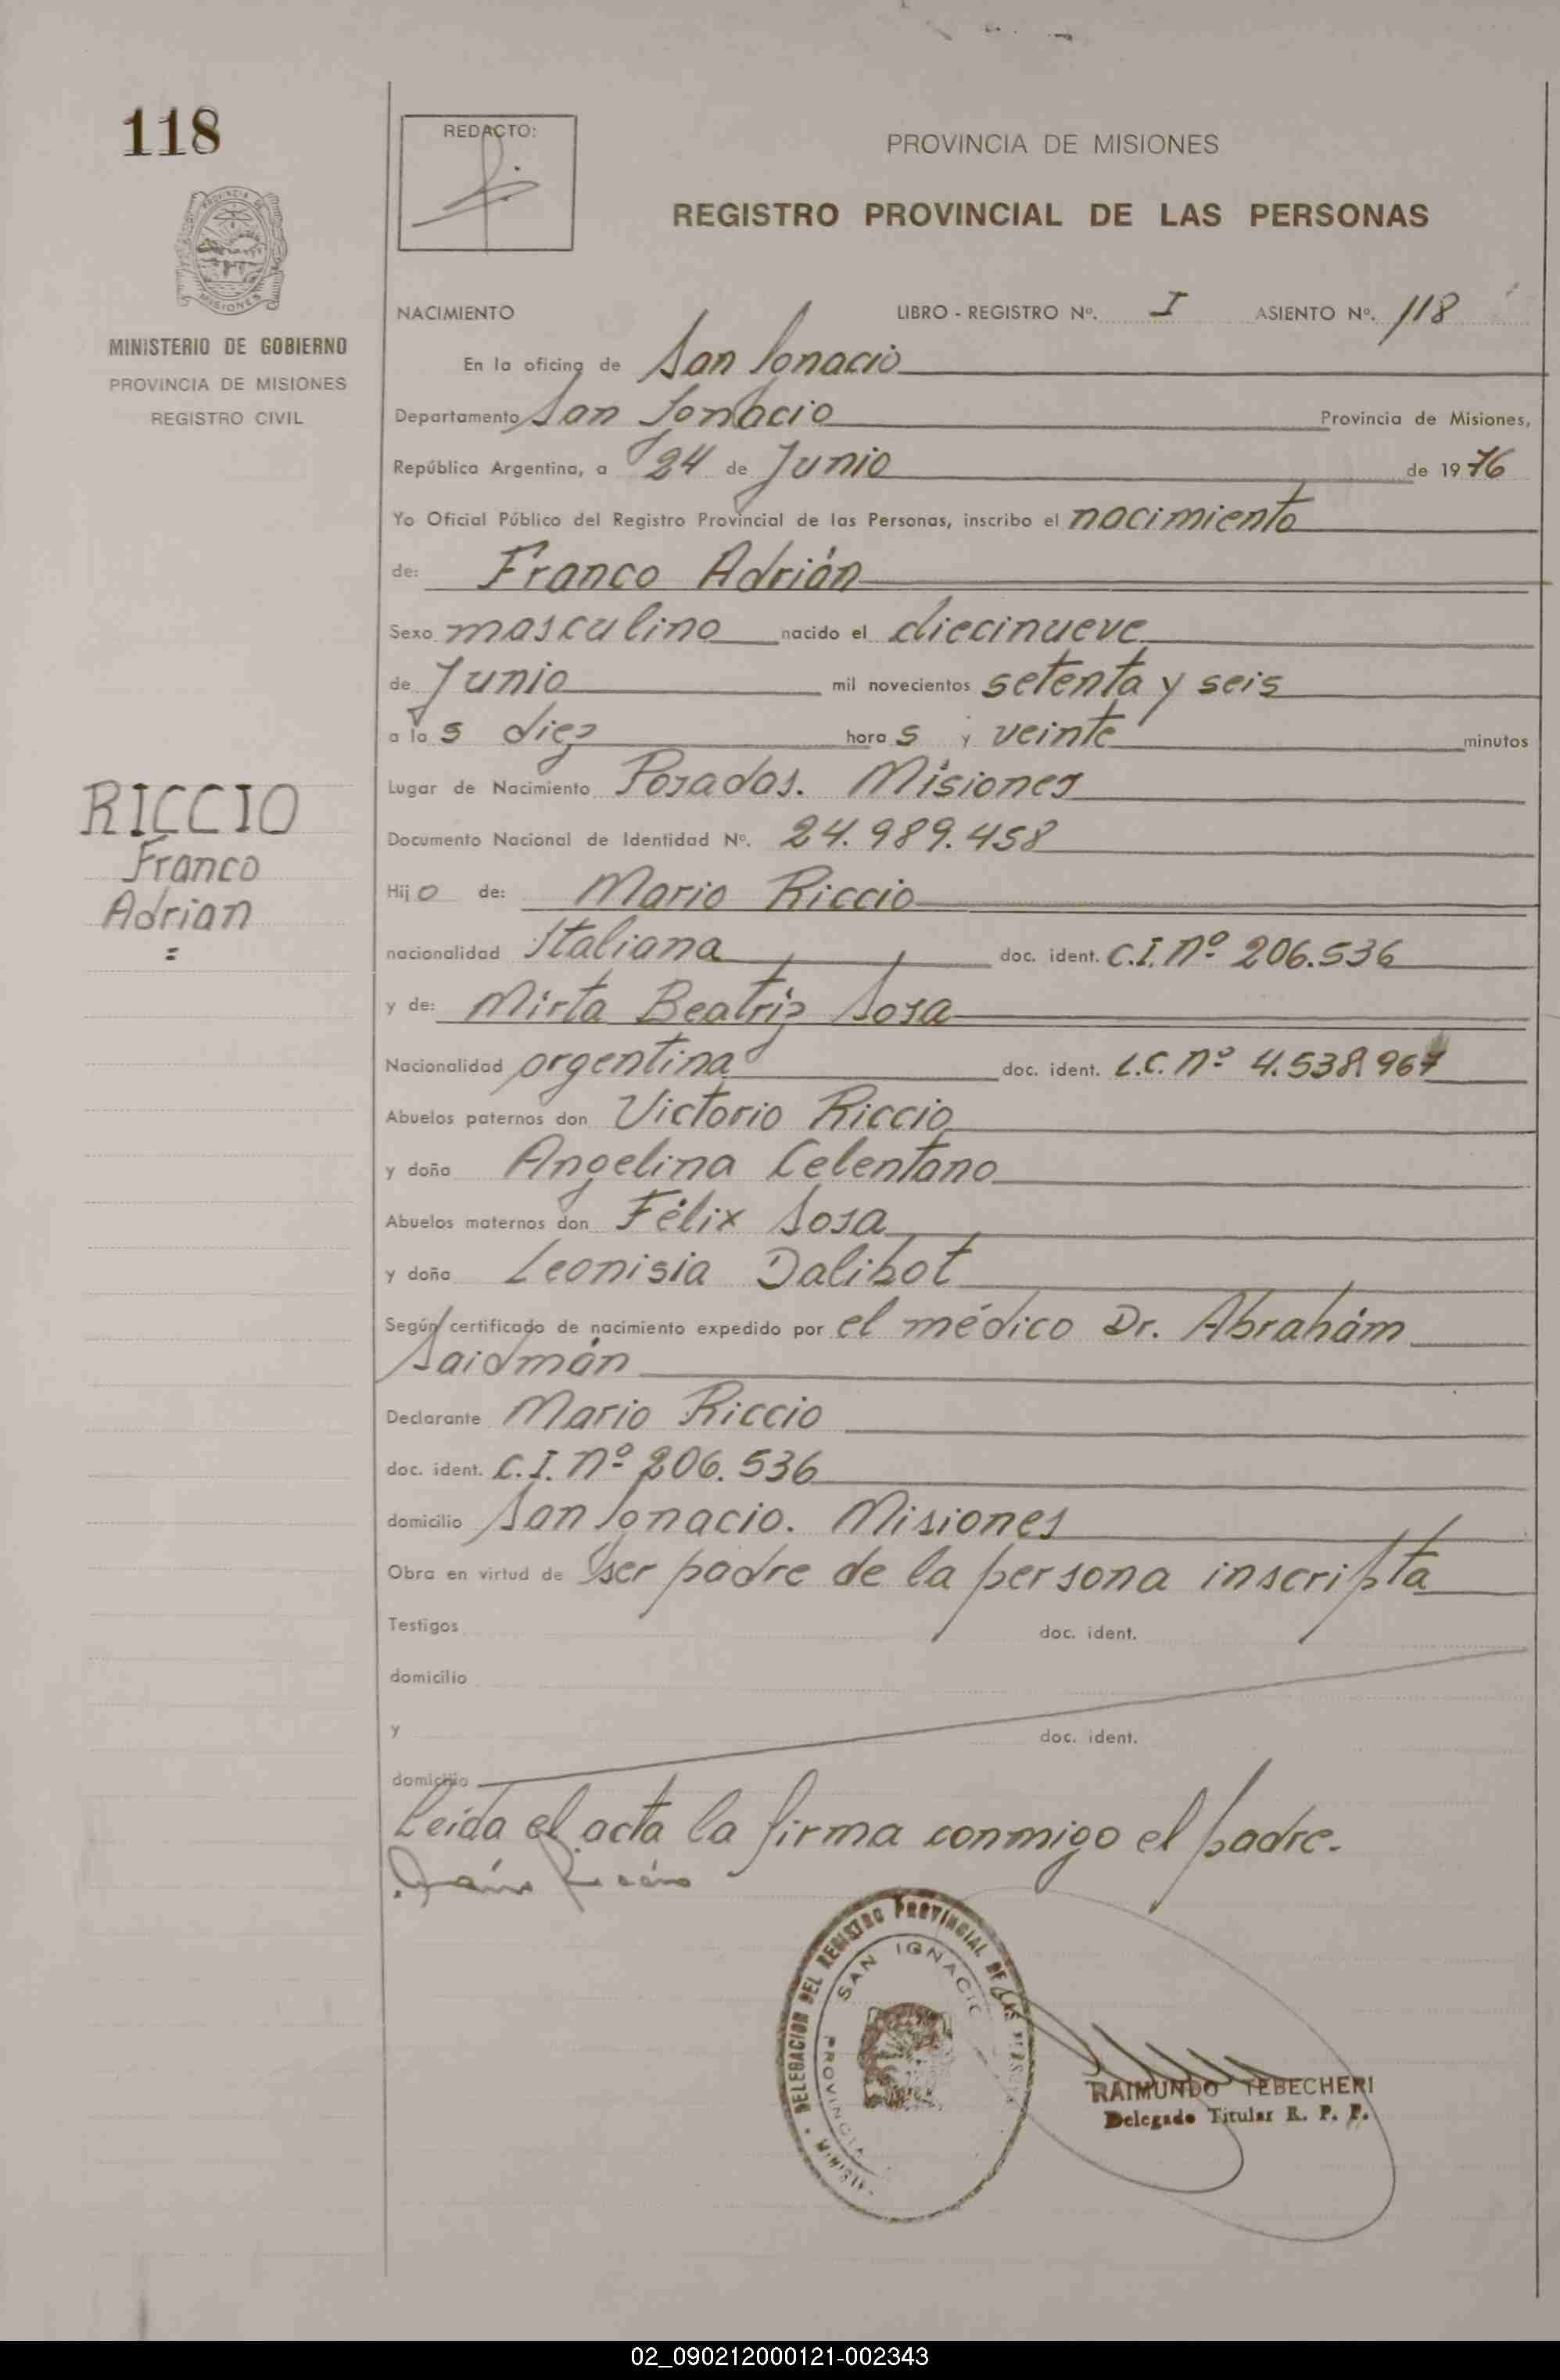 118
REDACTO:
PROVINCIA DE MISIONES
REGISTRO PROVINCIAL DE LAS PERSONAS
MINISTERIO DE GOBIERNO
PROVINCIA DE MISIONES
REGISTRO CIVIL
NACIMIENTO LIBRO - REGISTRO Nº. I ASIENTO Nº. 118
En la oficina de San Ignacio
Departamento San Ignacio Provincia de Misiones,
República Argentina, a 24 de Junio de 1976
Yo Oficial Público del Registro Provincial de las Personas, inscribo el nacimiento
de: Franco Adrián
Sexo masculino nacido el diecinueve
de Junio mil novecientos setenta y seis
a las diez horas y veinte minutos
Lugar de Nacimiento Posadas. Misiones
RICCIO
Franco
Adrian
=
Documento Nacional de Identidad Nº. 24.989.458
Hijo de: Mario Riccio
nacionalidad Italiana doc. ident. C.I. nº 206.536
y de: Mirta Beatriz Sosa
Nacionalidad argentina doc. ident. L.C. nº 4.538.967
Abuelos paternos don Victorio Riccio
y doña Angelina Celentano
Abuelos maternos don Félix Sosa
y doña Leonisia Dalibot
Según certificado de nacimiento expedido por el médico Dr. Abrahám
Saidmán
Declarante Mario Riccio
doc. ident. C.I. nº 206.536
domicilio San Ignacio. Misiones
Obra en virtud de ser padre de la persona inscripta
Testigos doc. ident.
domicilio
y doc. ident.
domicilio
Leída el acta la firma conmigo el padre.
DELEGACION DEL REGISTRO PROVINCIAL DE LAS
SAN IGNACIO
PROVINCIA
RAIMUNDO TEBECHERI
Delegado Titular R. P. P.
02_090212000121-002343